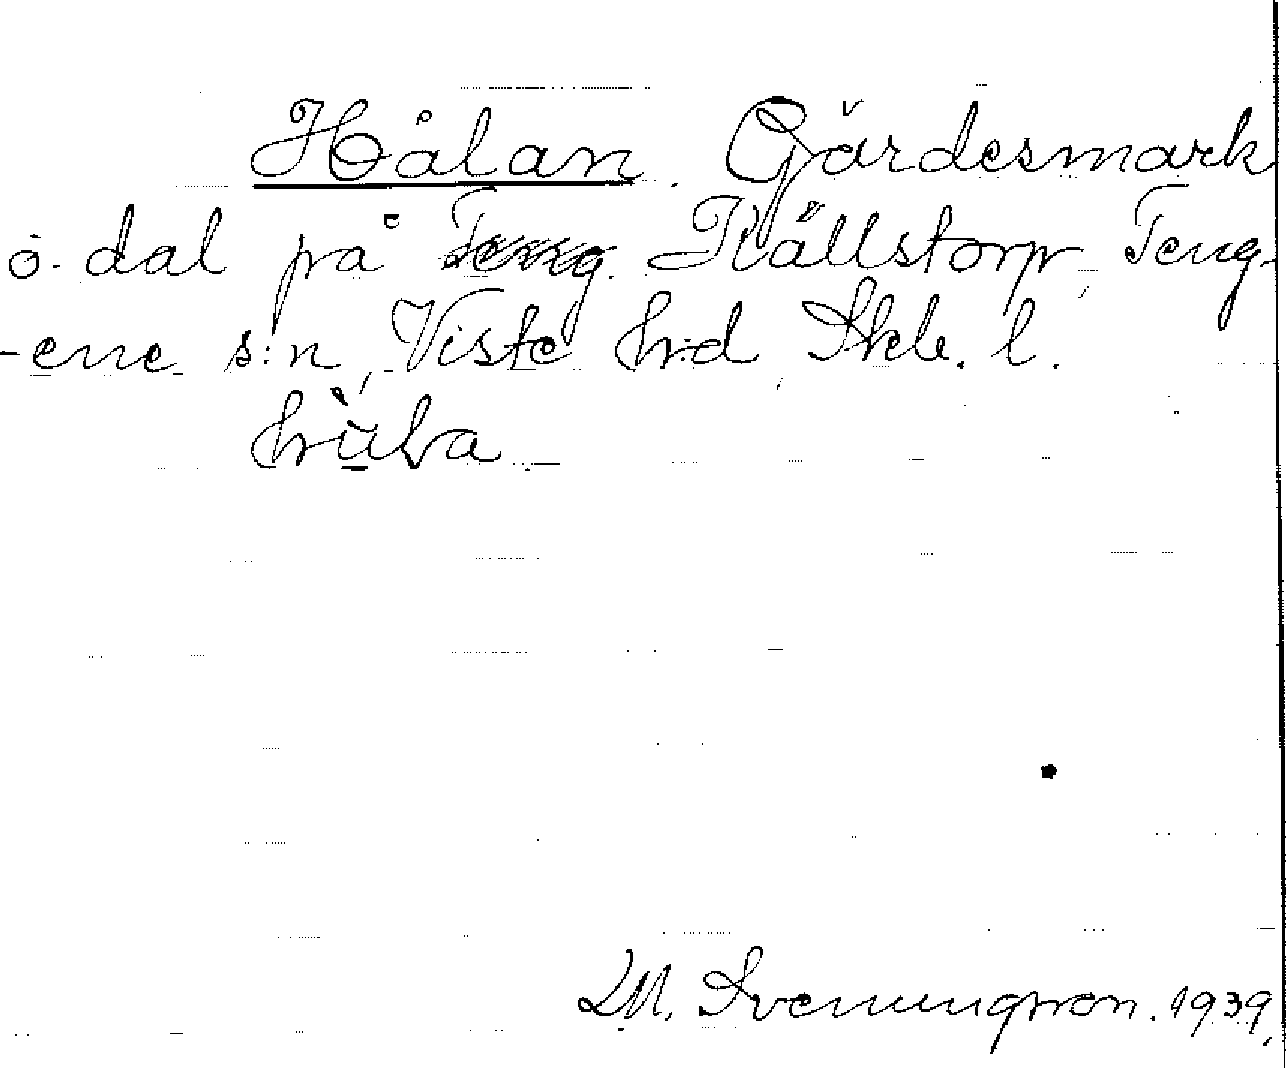 Hålan. Gärdesmark
o. dal på Källstorp, Teng-
-ene s:n, Viste hrd Skb. l.
LM. Svenungsson. 1939.